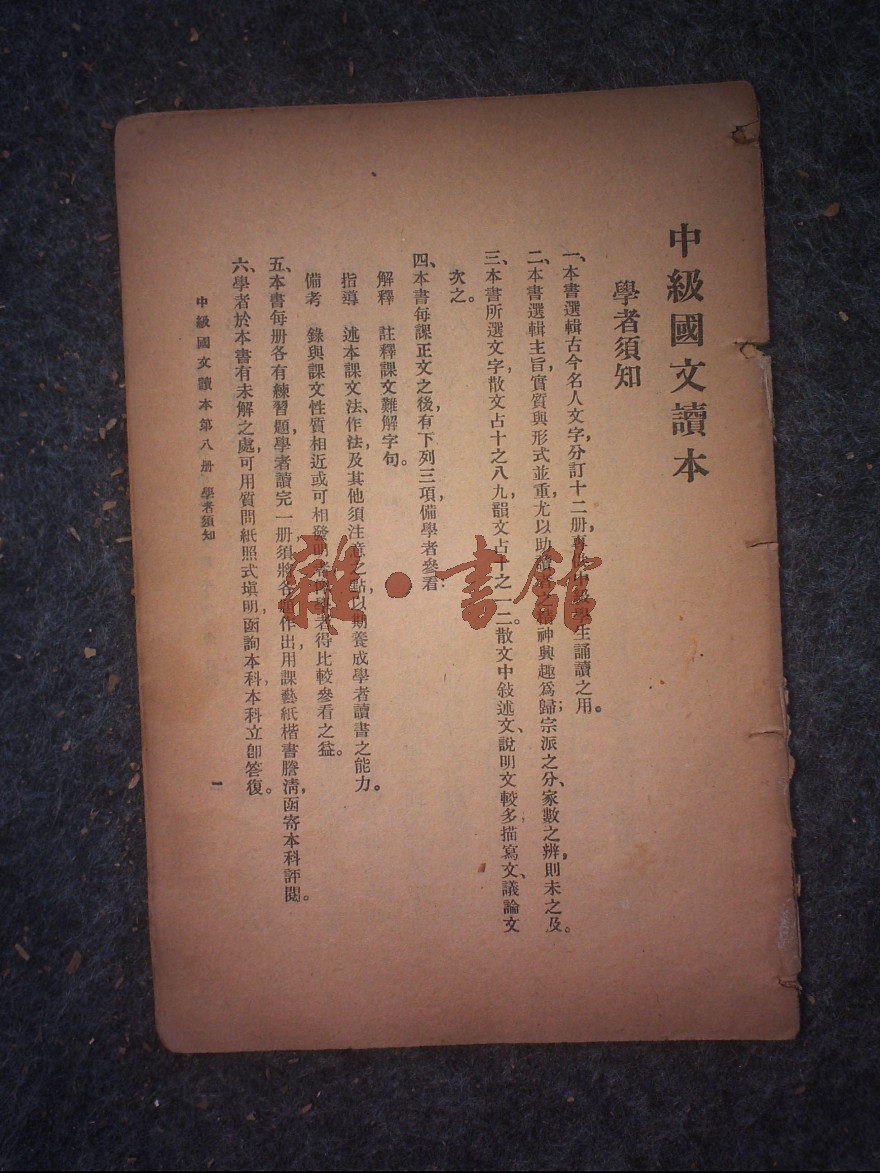 中級國文讀本
學者須知
一、本書選輯古今名人文字，分訂十二册，專供中級學生誦讀之用。
二、本書選輯主旨，實質與形式並重，尤以助讀者精神興趣爲歸；宗派之分、家數之辨，則未之及。
三、本書所選文字，散文占十之八九，韻文占十之一二。散文中敍述文、說明文較多，描寫文、議論文
次之。
四、本書每課正文之後，有下列三項，備學者參看：
解釋　註釋課文難解字句。
指導　述本課文法、作法，及其他須注意之點，以期養成學者讀書之能力。
備考　錄與課文性質相近或可相發明者，學者得比較參看之益。
五、本書每册各有練習題，學者讀完一册，須將各題作出，用課藝紙楷書謄淸，函寄本科評閱。
六、學者於本書有未解之處，可用質問紙照式塡明，函詢本科，本科立卽答復。
中級國文讀本第八册　學者須知
一
雜·書館